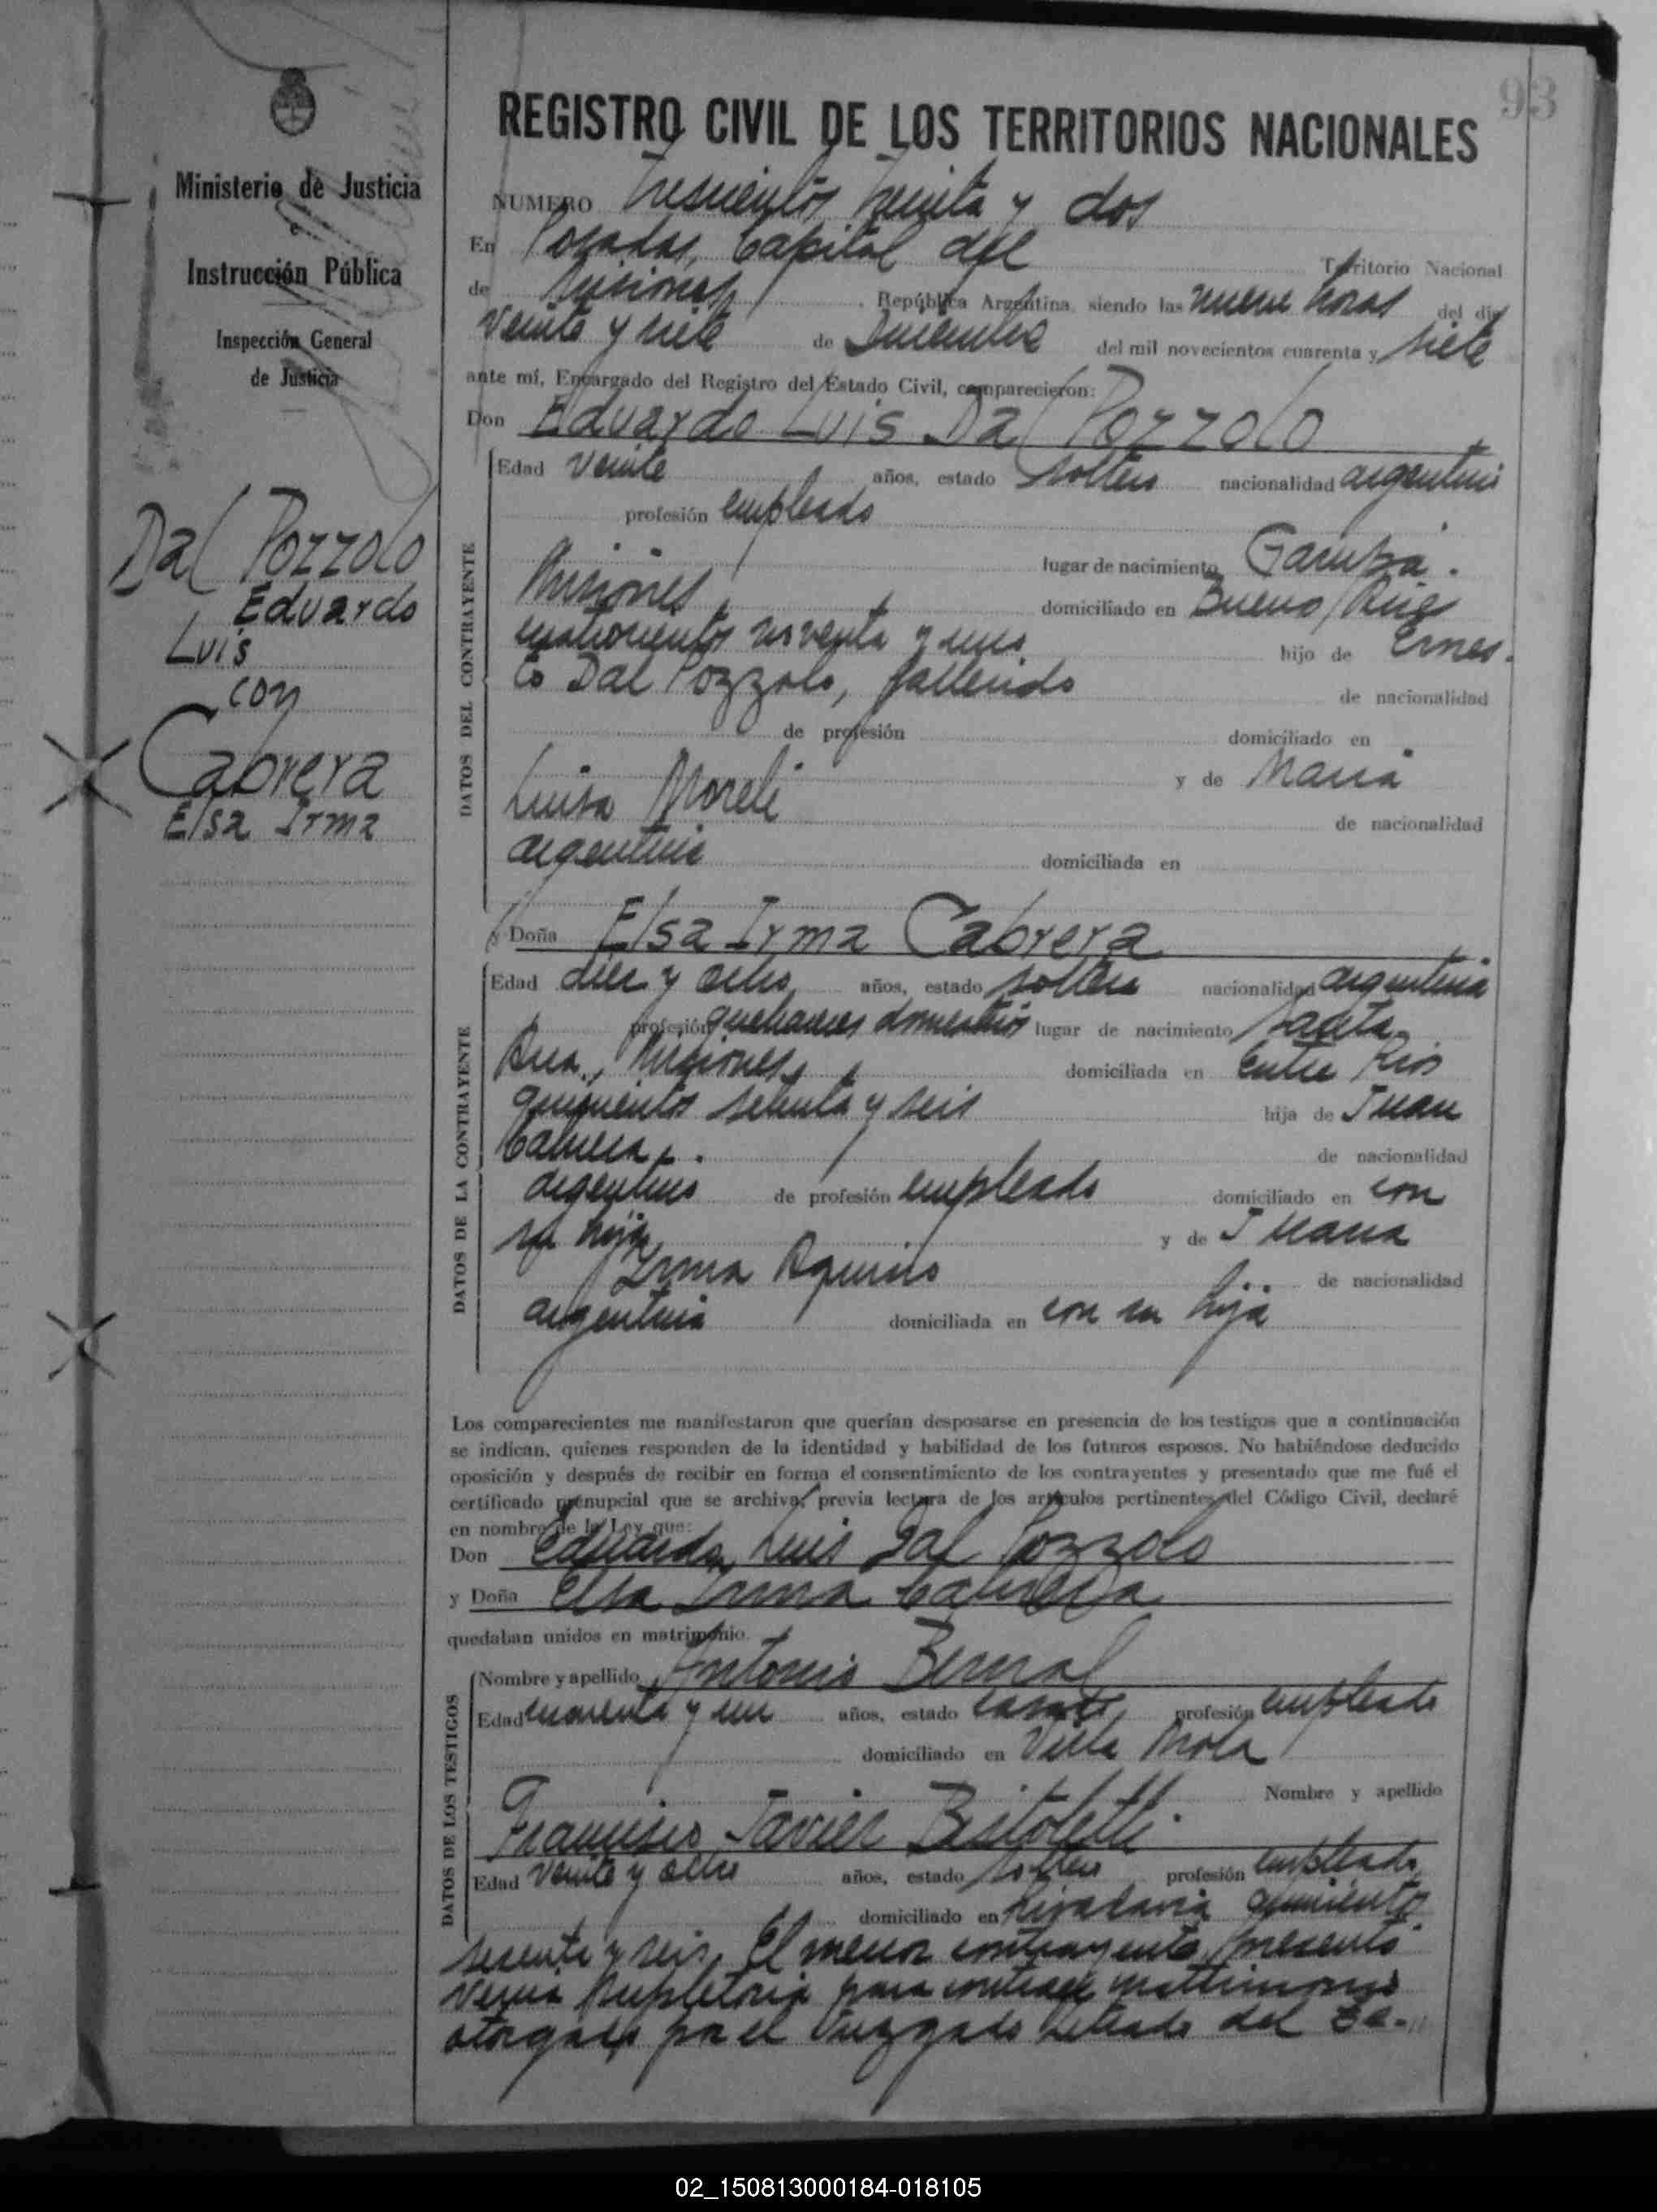 93
Ministerio de Justicia
e
Instrucción Pública
Inspección General
de Justicia
Dal Pozzolo
Eduardo
Luis
con
Cabrera
Elsa Irma
REGISTRO CIVIL DE LOS TERRITORIOS NACIONALES
NUMERO Trescientos treinta y dos
En Posadas, Capital del Territorio Nacional
de Misiones, República Argentina, siendo las nueve horas del día
veinte y siete de Diciembre del mil novecientos cuarenta y siete
ante mí, Encargado del Registro del Estado Civil, comparecieron:
Don Eduardo Luis Dal Pozzolo
DATOS DEL CONTRAYENTE
Edad veinte años, estado soltero nacionalidad argentino
profesión empleado
lugar de nacimiento Garupá.
Misiones, domiciliado en Bueno
cuatrocientos noventa y uno hijo de Ernes-
to Dal Pozzolo, fallecido de nacionalidad
de profesión domiciliado en
y de María
Luisa Moreli de nacionalidad
argentina domiciliada en
y Doña Elsa Irma Cabrera
DATOS DE LA CONTRAYENTE
Edad diez y ocho años, estado soltera nacionalidad argentina
profesión quehaceres domésticos lugar de nacimiento Santa
Ana, Misiones, domiciliada en Entre Rios
quinientos setenta y seis hija de Juan
Cabrera, de nacionalidad
argentino de profesión empleado domiciliado en con
su hija, y de Juana
Irma Aquino de nacionalidad
argentina domiciliada en con su hija
Los comparecientes me manifestaron que querían desposarse en presencia de los testigos que a continuación
se indican, quienes responden de la identidad y habilidad de los futuros esposos. No habiéndose deducido
oposición y después de recibir en forma el consentimiento de los contrayentes y presentado que me fué el
certificado prenupcial que se archiva, previa lectura de los artículos pertinentes del Código Civil, declaré
en nombre de la Ley que:
Don Eduardo Luis Dal Pozzolo
y Doña Elsa Irma Cabrera
quedaban unidos en matrimonio.
DATOS DE LOS TESTIGOS
Nombre y apellido Antonio Bernal
Edad cuarenta y un años, estado casado, profesión empleado
domiciliado en Villa Mola
Nombre y apellido
Francisco Javier
Edad veinte y ocho años, estado soltero profesión empleado,
domiciliado en Rivadavia quinientos
sesenta y seis. El menor contrayente presentó
venia supletoria para contraer matrimonio
otorgado por el Juzgado Letrado del
02_150813000184-018105